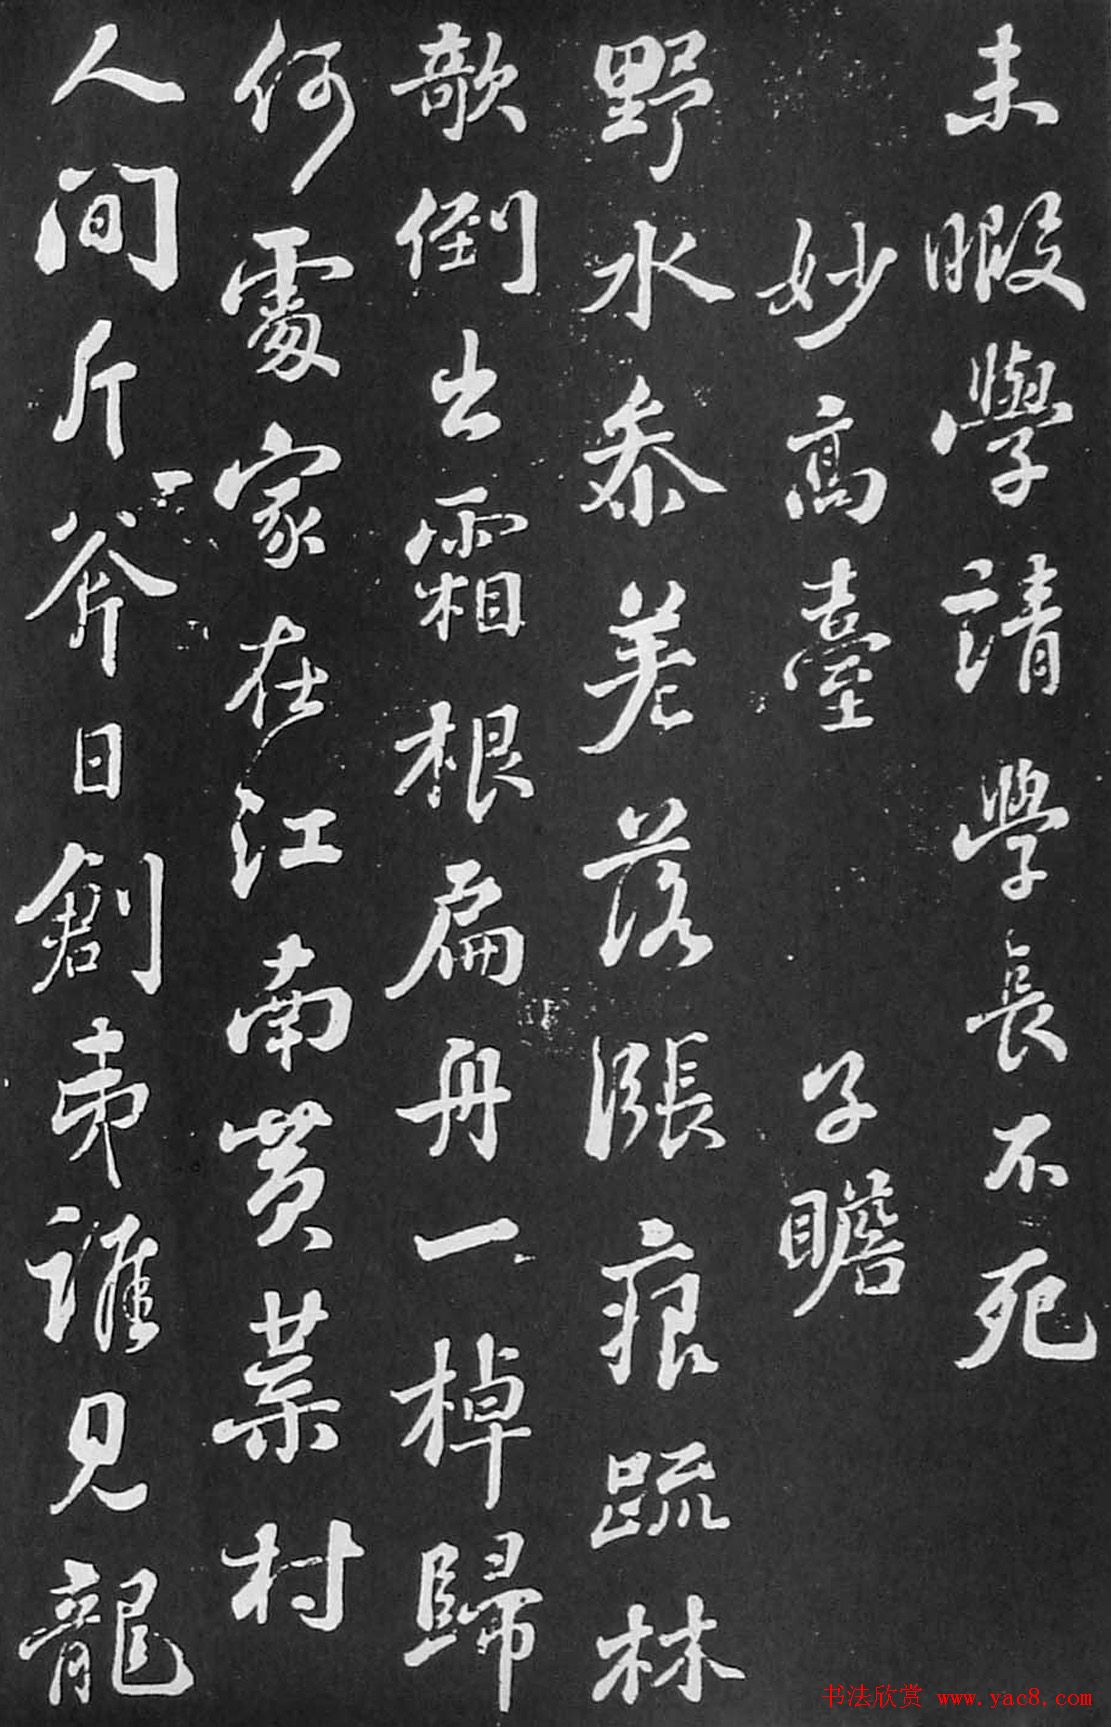 未暇學請學長不死
妙高臺 子瞻
野水參差落漲痕疏林
欹倒出霜根扁舟一棹歸
何處家在江南黃葉村
人間斤斧日創夷誰見龍
书法欣赏 www.yac8.com